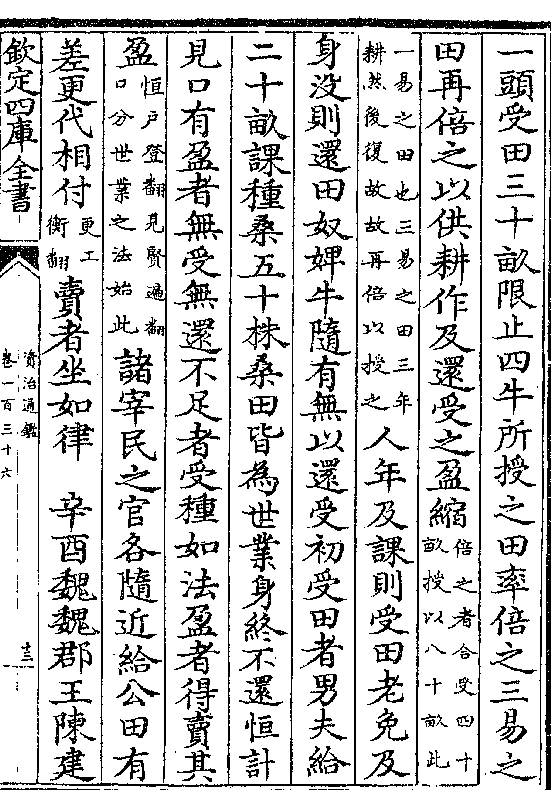 一頭受田三十畝限止四牛所授之田率倍之三易之
田再倍之以供耕作及還受之盈縮倍之者合受四十畝授以八十畝此
一易之田也三易之田三年耕然後復故故再倍以授之人年及課則受田老免及
身没則還田奴婢牛隨有無以還受初受田者男夫給
二十畝課種桑五十株桑田皆為世業身終不還恒計
見口有盈者無受無還不足者受種如法盈者得賣其
盈恒户登翻見賢遍翻口分世業之法始此諸宰民之官各隨近給公田有
差更代相付更工衡翻賣者坐如律　辛酉魏魏郡王陳建
欽定四庫全書
資治通鑑
卷一百三十六
十三